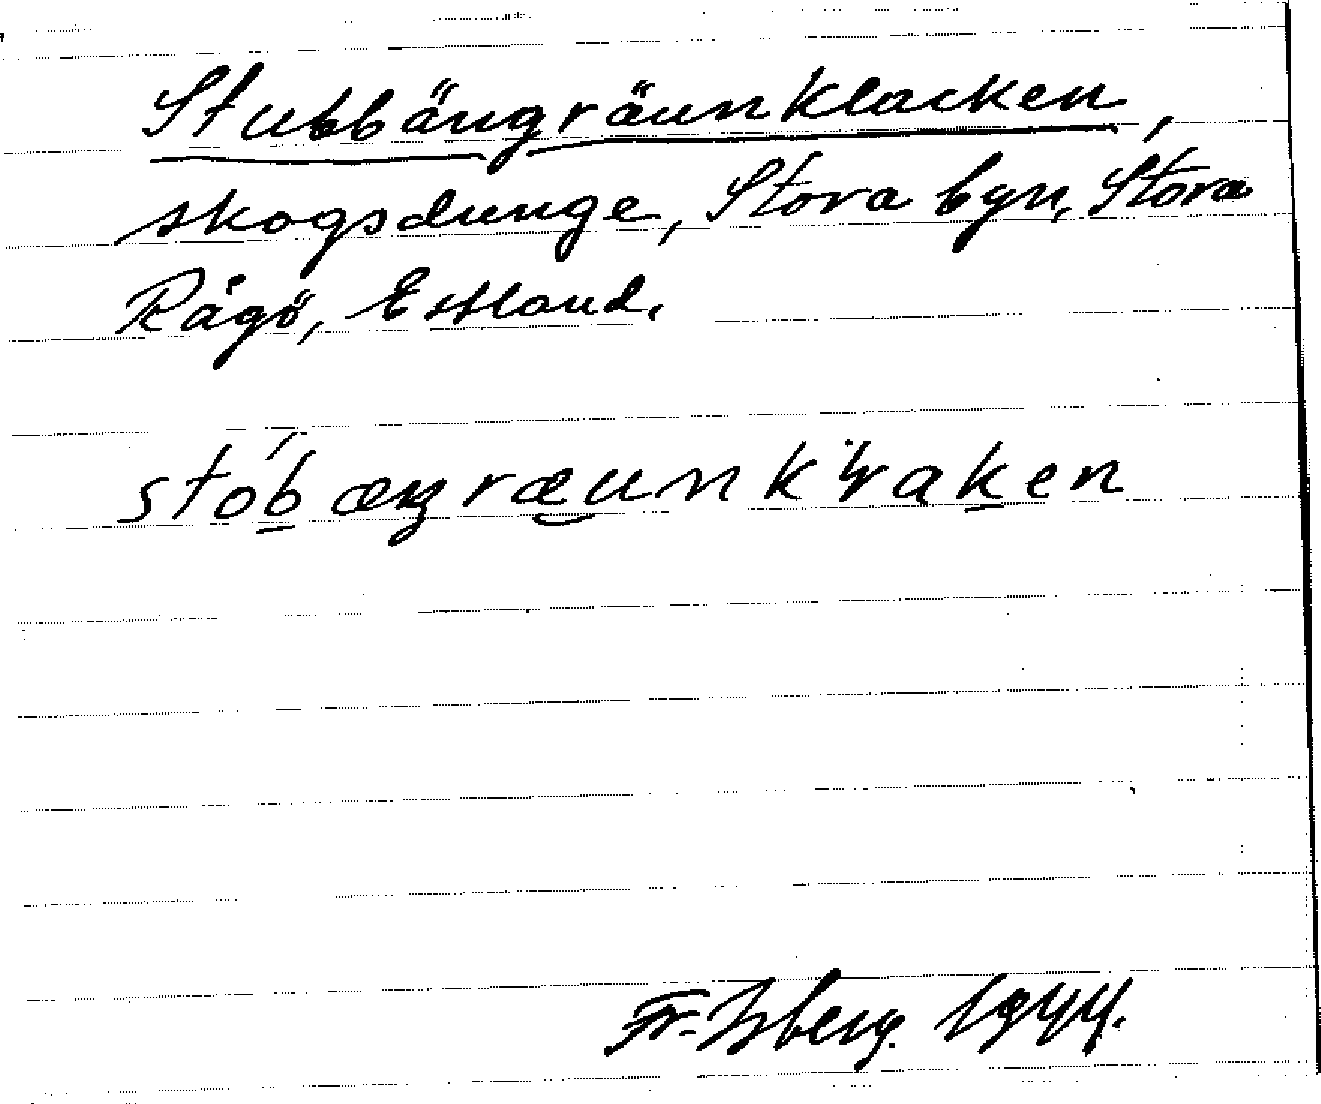 Stubbängräunklacken,
skogsdunge, Stora byn, Stora
Rågö, Estland.
stób æŋ ræunkɽaken
Fr. Isberg. 1944.